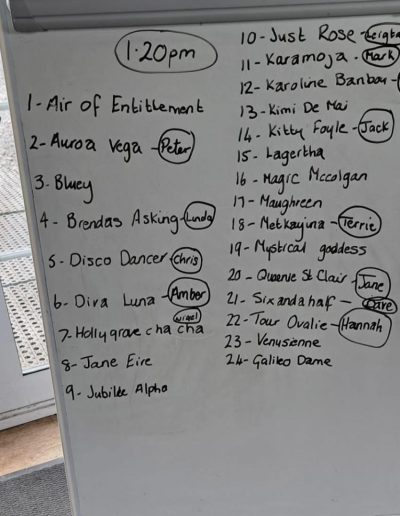 1.20pm
1- Air of Entitlement
2- Auroa Vega - Peter
3- Bluey
4- Brendas Asking - Linda
5- Disco Dancer - Chris
6- Diva Luna - Amber
Nigel
7- Hollygrave cha cha
8- Jane Eire
9- Jubilee Alpha
10- Just Rose - Leigh
11- Karamoja - Mark
12- Karoline Banbou -
13- Kimi De Mai
14- Kitty Foyle - Jack
15- Lagertha
16- Magic Mccolgan
17- Maughreen
18- Metkayina - Terrie
19- Mystical goddess
20- Queenie St Clair - Jane
21- Sixandahalf - Dave
22- Tour Ovalie - Hannah
23- Venusienne
24- Galileo Dame